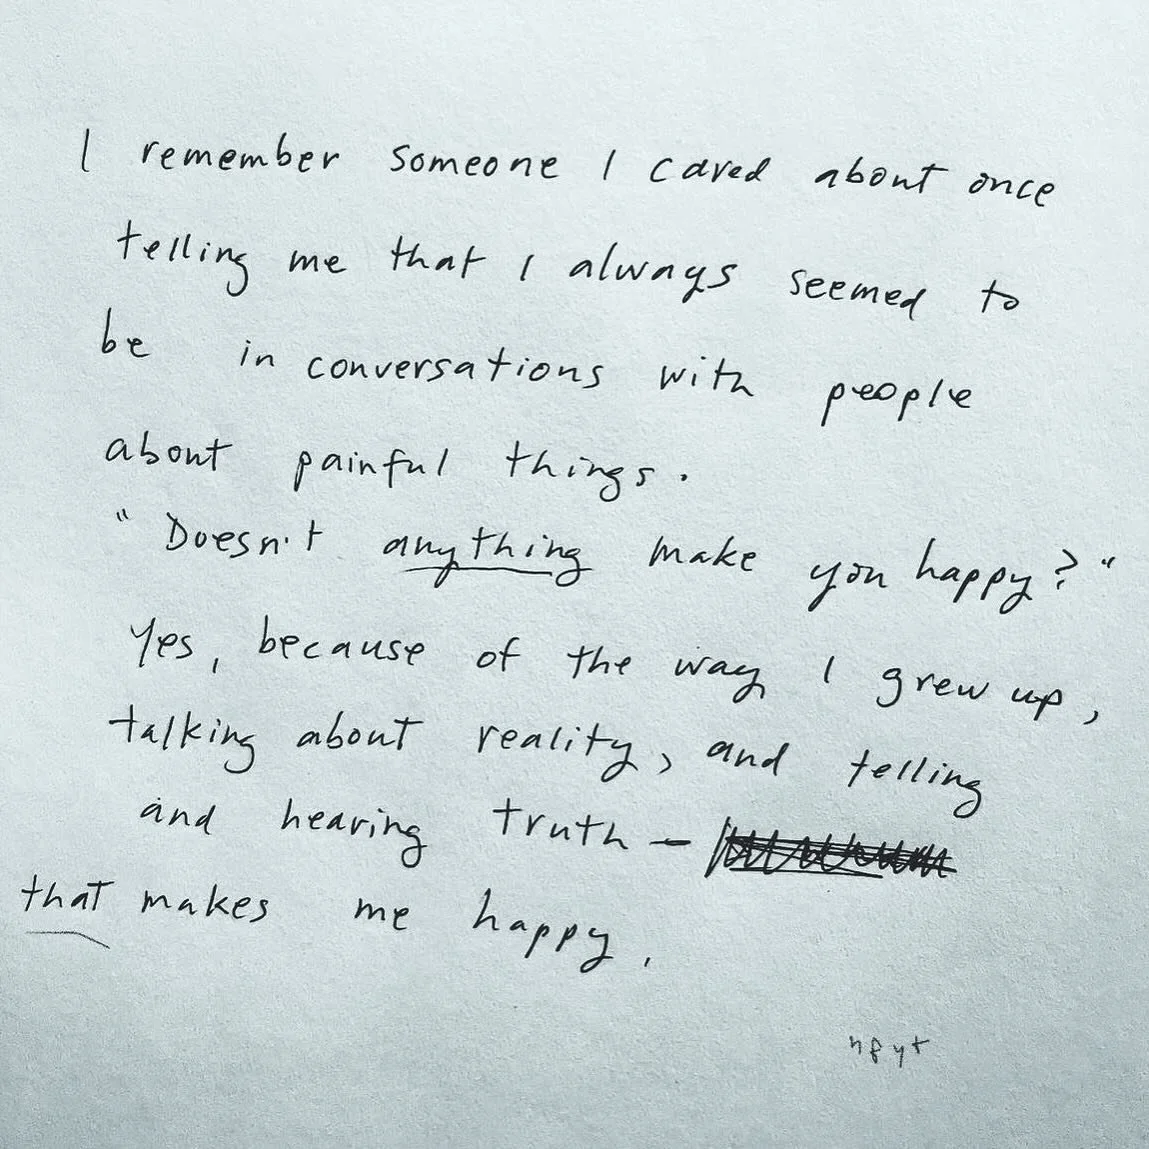 I remember someone I cared about once
telling me that I always seemed to
be in conversations with people
about painful things.
"Doesn't anything make you happy?"
Yes, because of the way I grew up,
talking about reality, and telling
and hearing truth —
that makes me happy.
hfyt